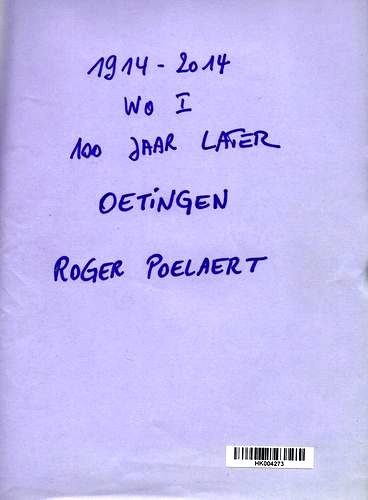 1914 - 2014
WO I
100 JAAR LATER
OETINGEN
ROGER POELAERT
HK004273